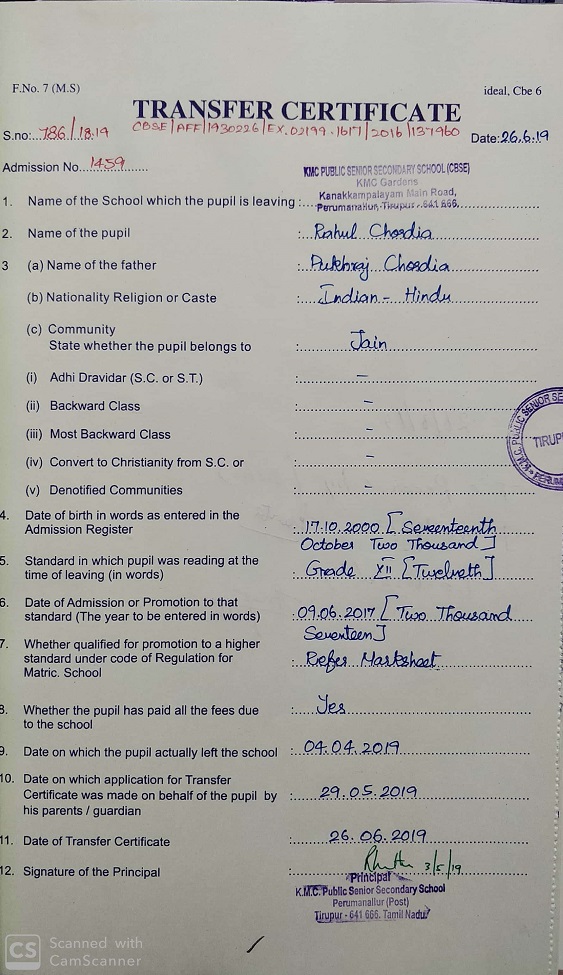 F.No. 7 (M.S)
ideal, Cbe 6
TRANSFER CERTIFICATE
S.no: 786/18.19
CBSE/AFF/1930226/EX.02199.1617/2016/137960
Date: 26.6.19
Admission No. 1459
KMC PUBLIC SENIOR SECONDARY SCHOOL (CBSE)
KMC Gardens
Kanakkampalayam Main Road,
1. Name of the School which the pupil is leaving : Perumanallur, Tirupur - 641 666.
2. Name of the pupil : Rahul Chordia
3 (a) Name of the father : Pukhraj Chordia
(b) Nationality Religion or Caste : Indian - Hindu
(c) Community
State whether the pupil belongs to : Jain
(i) Adhi Dravidar (S.C. or S.T.) : –
(ii) Backward Class : –
(iii) Most Backward Class : –
(iv) Convert to Christianity from S.C. or : –
(v) Denotified Communities : –
K.M.C. PUBLIC SENIOR SE
TIRUP
PERUM
4. Date of birth in words as entered in the
Admission Register : 17.10.2000 [Seventeenth
October Two Thousand]
5. Standard in which pupil was reading at the
time of leaving (in words) : Grade XII [Twelveth]
6. Date of Admission or Promotion to that
standard (The year to be entered in words) : 09.06.2017 [Two Thousand
Seventeen]
7. Whether qualified for promotion to a higher
standard under code of Regulation for : Refer Marksheet
Matric. School
8. Whether the pupil has paid all the fees due : Yes
to the school
9. Date on which the pupil actually left the school : 04.04.2019
10. Date on which application for Transfer
Certificate was made on behalf of the pupil by : 29.05.2019
his parents / guardian
11. Date of Transfer Certificate : 26.06.2019
12. Signature of the Principal : 3/5/19
Principal
K.M.C. Public Senior Secondary School
Perumanallur (Post)
Tirupur - 641 666. Tamil Nadu
CS Scanned with
CamScanner